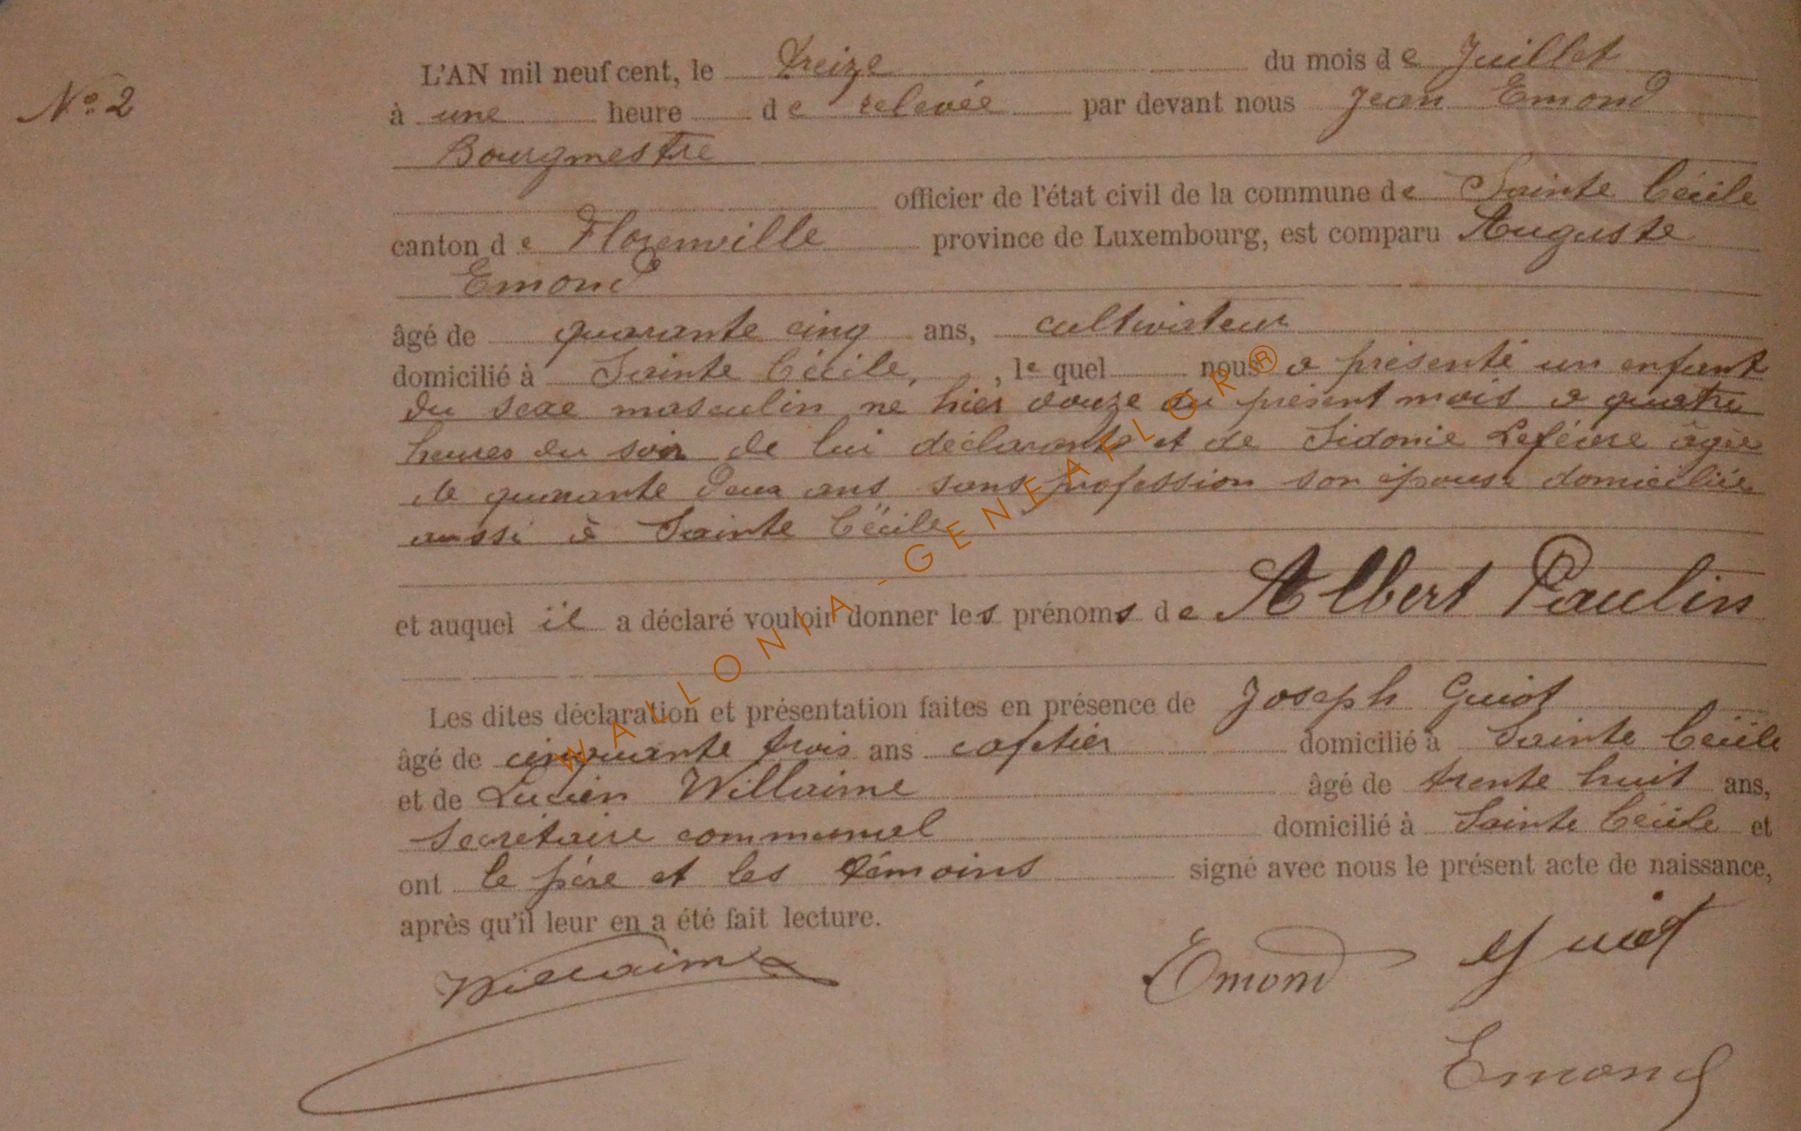 No 2
L'AN mil neuf cent, le treize du mois de Juillet
à une heure de relevée par devant nous Jean Emond
Bourgmestre
officier de l'état civil de la commune de Sainte Cécile
canton de Florenville province de Luxembourg, est comparu Auguste
Emond
âgé de quarante cinq ans, cultivateur
domicilié à Sainte Cécile, , lequel nous a présenté un enfant
du sexe masculin né hier douze du présent mois a quatre
heures du soir de lui déclarante et de Sidonie Lefévre âgée
de quarante deux ans sans profession son épouse domiciliée
aussi à Sainte Cécile
et auquel il a déclaré vouloir donner les prénoms de Albert Paulin
Les dites déclaration et présentation faites en présence de Joseph Guiot
âgé de cinquante trois ans cafetier domicilié à Sainte Cécile
et de Lucien Willaime âgé de trente huit ans,
secrétaire communel domicilié à Sainte Cécile et
ont le père et les témoins signé avec nous le présent acte de naissance,
après qu'il leur en a été fait lecture.
Willaime Emond Guiot
Emond
WALLONIA-GENEAFLOR®